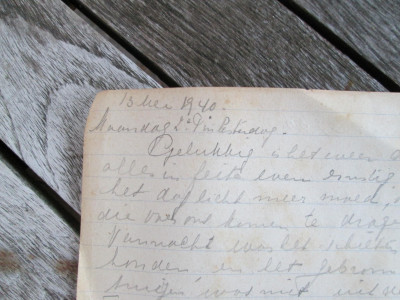 13 Mei 1940.
Maandag 2e Pinksterdag.
Gelukkig is het weer
alles in feite even ernstig
het daglicht meer moed,
die van ons komen te
Vannacht was het schieten
honden en het gebrom
was niet uit de